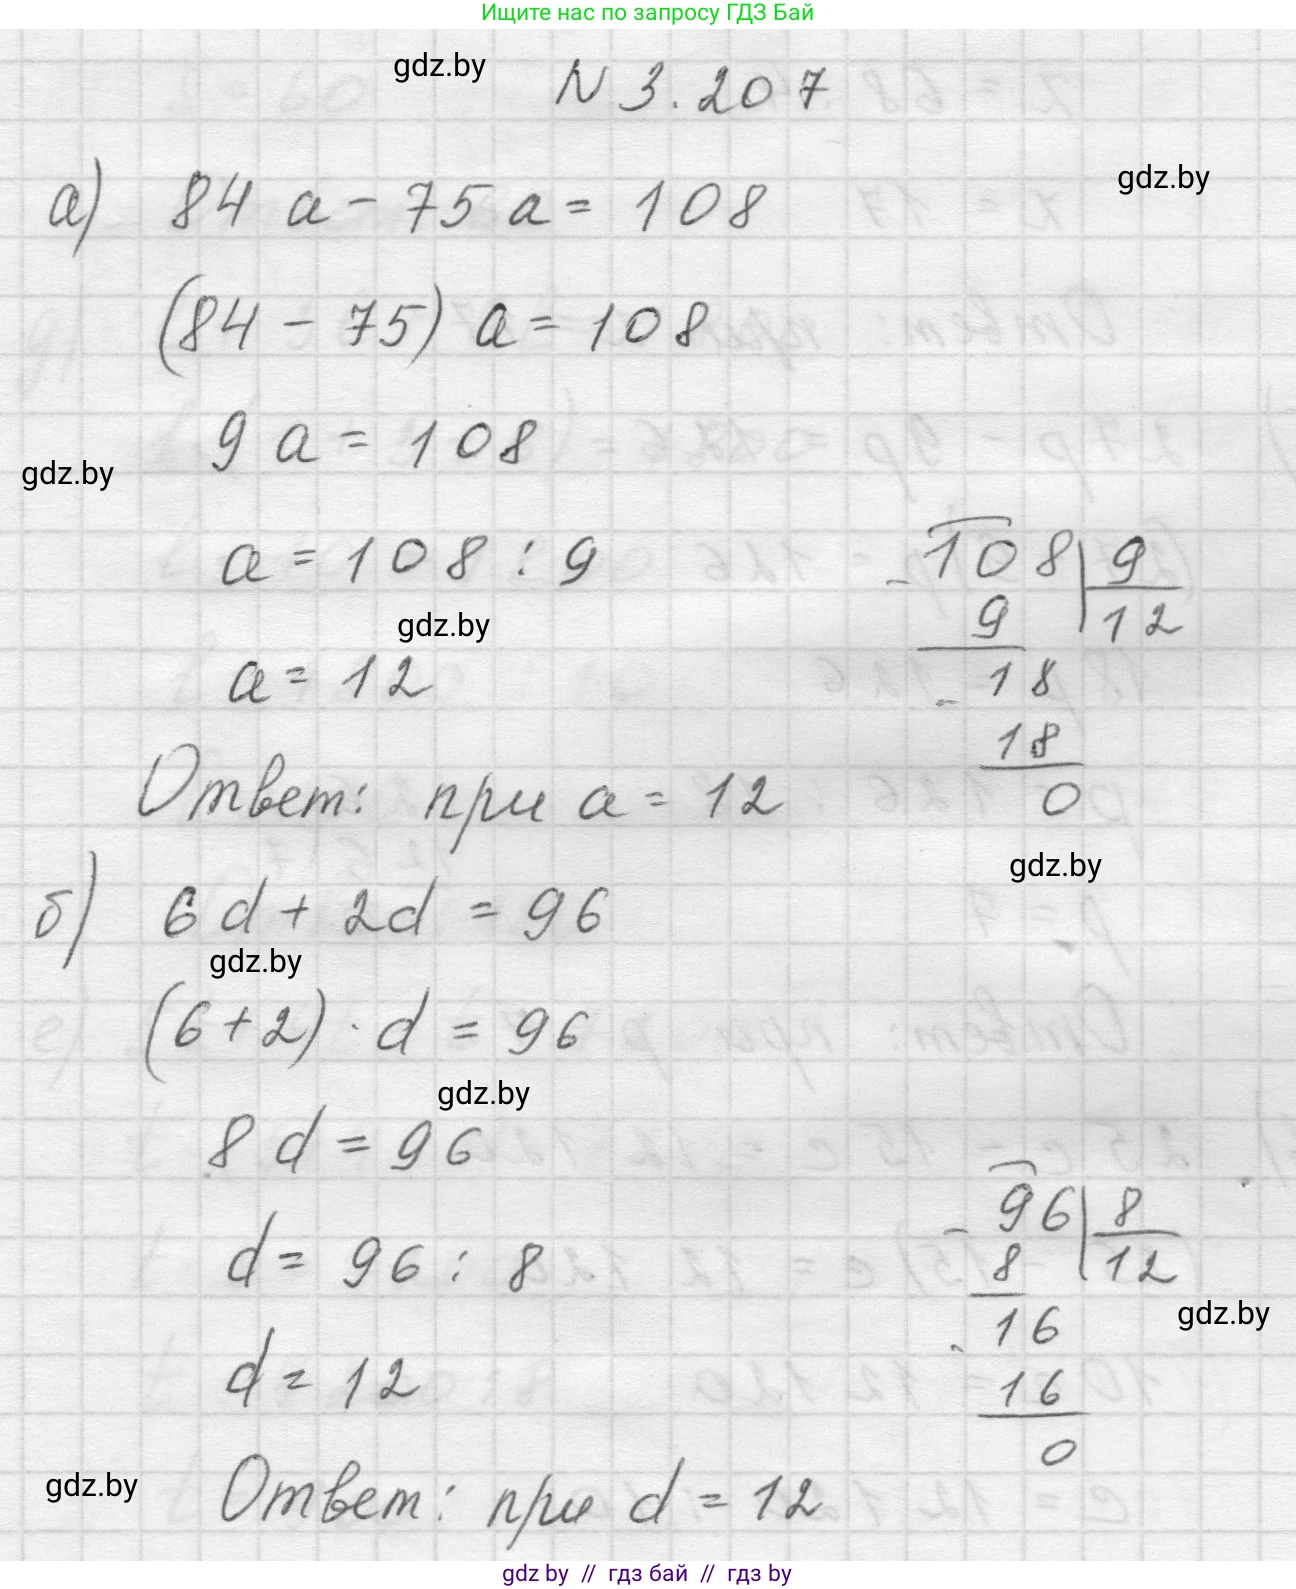 Ищите нас по запросу ГДЗ Бай
gdz.by
N 3.207
gdz.by
а) 84 a - 75 a = 108
(84 - 75) a = 108
9 a = 108
gdz.by
a = 108 : 9
108 9
- 9 12
gdz.by
a = 12
- 18
18
0
Ответ: при a = 12
gdz.by
б) 6d + 2d = 96
gdz.by
(6+2) · d = 96
gdz.by
8 d = 96
d = 96 : 8
- 96 8
8 12
gdz.by
- 16
16
0
d = 12
gdz.by
Ответ: при d = 12
gdz.by // гдз бай // гдз by